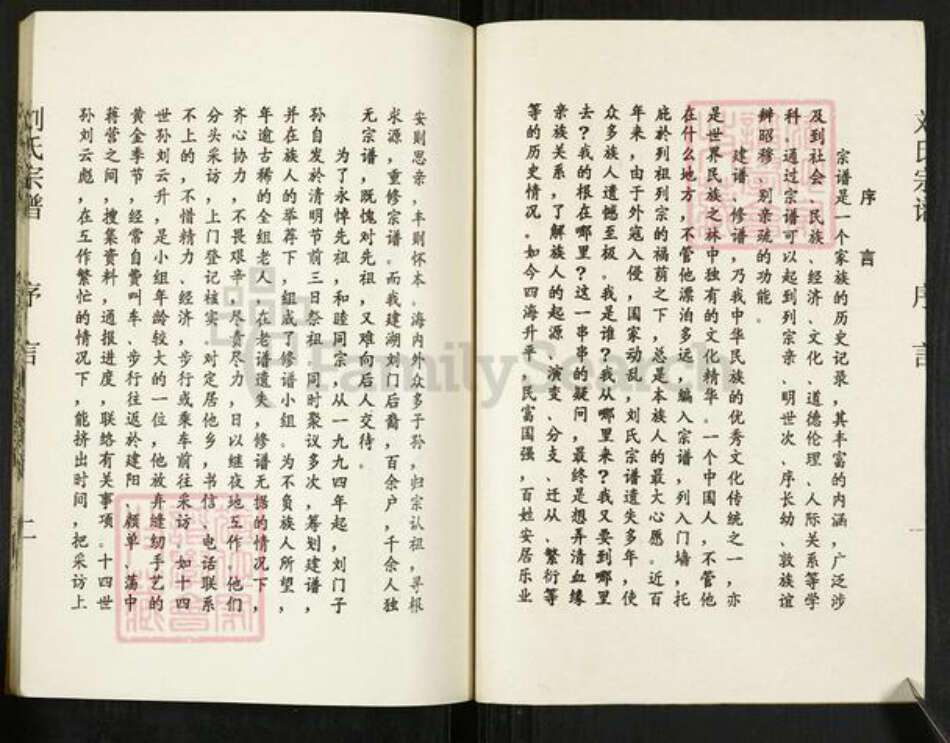 刘氏宗谱 序言 一
序言
宗谱是一个家族的历史记录，其丰富的内涵，广泛涉
及到社会、民族、经济、文化、道德伦理、人际关系等学
科。通过宗谱可以起到列宗亲、明世次、序长幼、敦族谊
辨昭穆、别亲疏的功能。
建谱、修谱，乃我中华民族的优秀文化传统之一，亦
是世界民族之林中独有的文化精华。一个中国人，不管他
在什么地方，不管他漂泊多远，编入宗谱，列入门墙，托
庇於列祖列宗的福荫之下，总是本族人的最大心愿。近百
年来，由于外寇入侵，国家动乱，刘氏宗谱遗失多年，使
众多族人遗憾至极。我是谁？我从哪里来？我又要到哪里
去？我的根在哪里？这一串串的疑问，最终是想弄清血缘
亲族关系，了解族人的起源、演变、分支、迁从、繁衍等
等的历史情况。如今四海升平，民富国强，百姓安居乐业
安则思亲，丰则怀本。海内外众多子孙，归宗认祖，寻根
求源，重修宗谱。而我建湖刘门后裔，百余户，千余人独
无宗谱，既愧对先祖，又难向后人交待。
为了永悼先祖，和睦同宗，从一九九四年起，刘门子
孙自发於清明节前三日祭祖，同时聚议多次，筹划建谱，
并在族人的举荐下，组成了修谱小组。为不负族人所望，
年逾古稀的全组老人，在老谱遗失，修谱无据的情况下，
齐心协力，不畏艰辛，尽责尽力，日以继夜地工作。他们
分头采访，上门登记核实，对定居他乡，书信、电话联系
不上的，不惜精力、经济，步行或乘车前往采访。如十四
世孙刘云升，是小组年龄较大的一位，他放弃缝纫手艺的
黄金季节，经常自费叫车、步行往返於建阳、颜单、荡中
蒋营之间，搜集资料，通报进度，联络有关事项。十四世
孙刘云彪，在工作繁忙的情况下，能挤出时间，把采访上
刘氏宗谱 序言 二
FamilySearch